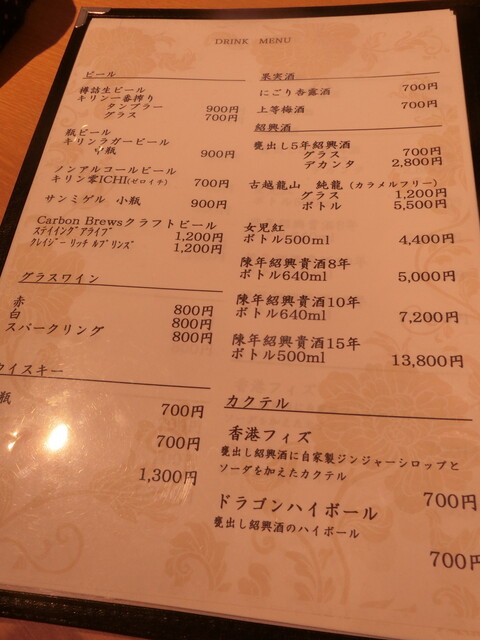 DRINK MENU
ビール
樽詰生ビール
キリン一番搾り
タンブラー 900円
グラス 700円
瓶ビール
キリンラガービール
中瓶 900円
ノンアルコールビール
キリン零ICHI(ゼロイチ) 700円
サンミゲル 小瓶 900円
Carbon Brewsクラフトビール
ステイイングアライブ 1,200円
クレイジーリッチルプリンズ 1,200円
グラスワイン
赤 800円
白 800円
スパークリング 800円
ウイスキー
瓶
700円
700円
1,300円
果実酒
にごり杏露酒 700円
上等梅酒 700円
紹興酒
甕出し5年紹興酒
グラス 700円
デカンタ 2,800円
古越龍山 純龍(カラメルフリー)
グラス 1,200円
ボトル 5,500円
女児紅
ボトル500ml 4,400円
陳年紹興貴酒8年
ボトル640ml 5,000円
陳年紹興貴酒10年
ボトル640ml 7,200円
陳年紹興貴酒15年
ボトル500ml 13,800円
カクテル
香港フィズ
甕出し紹興酒に自家製ジンジャーシロップと
ソーダを加えたカクテル
700円
ドラゴンハイボール
甕出し紹興酒のハイボール
700円